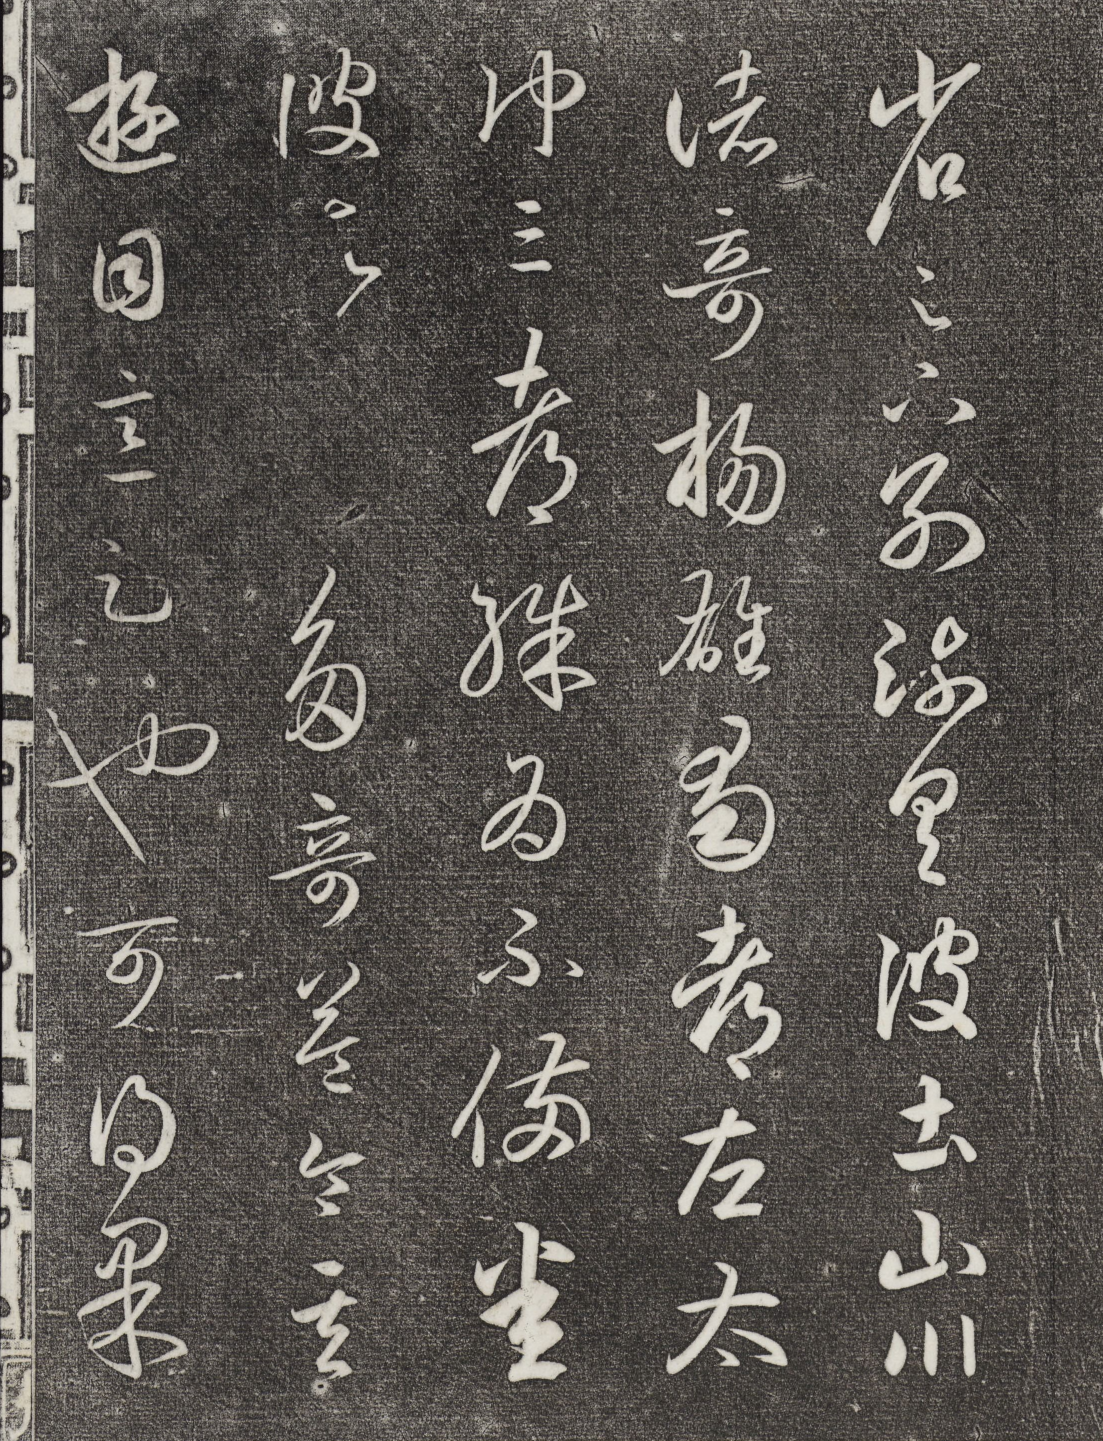 省足下別疏具彼土山川
諸奇楊雄蜀都左太
沖三都殊為不備悉
彼多奇益令其
遊目意足也可得果